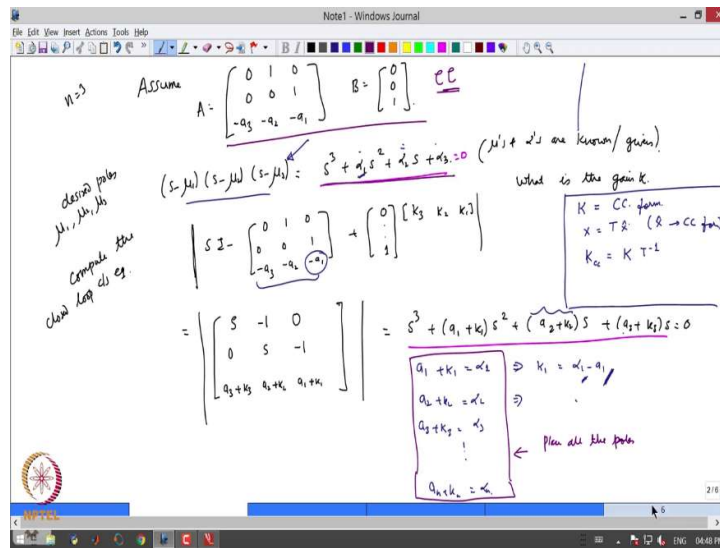 Note1 - Windows Journal
File Edit View Insert Actions Tools Help
n=3
Assume
A = [ 0 1 0
0 0 1
-a3 -a2 -a1 ]
B = [ 0
0
1 ]
CC
desired poles
μ1, μ2, μ3
(s-μ1) (s-μ2) (s-μ3) = s³ + α1 s² + α2 s + α3 = 0
(μ's & α's are known/given).
What is the gain K.
compute the
closed loop c/s eq.
| SI - [ 0 1 0
0 0 1
-a3 -a2 -a1 ] + [ 0
⋮
1 ] [K3 K2 K1] |
K = CC form
x = T x̂ (x̂ → CC form)
Kcc = K T⁻¹
= | [ S -1 0
0 S -1
a3+K3 a2+K2 a1+K1 ] | = S³ + (a1+K1) S² + (a2+K2) S + (a3+K3) s = 0
a1 + K1 = α1 ⇒ K1 = α1 - a1
a2 + K2 = α2 ⇒
a3 + K3 = α3
⋮
an + Kn = αn
← Place all the poles
2/6
6
NPTEL
ENG 04:48 PM